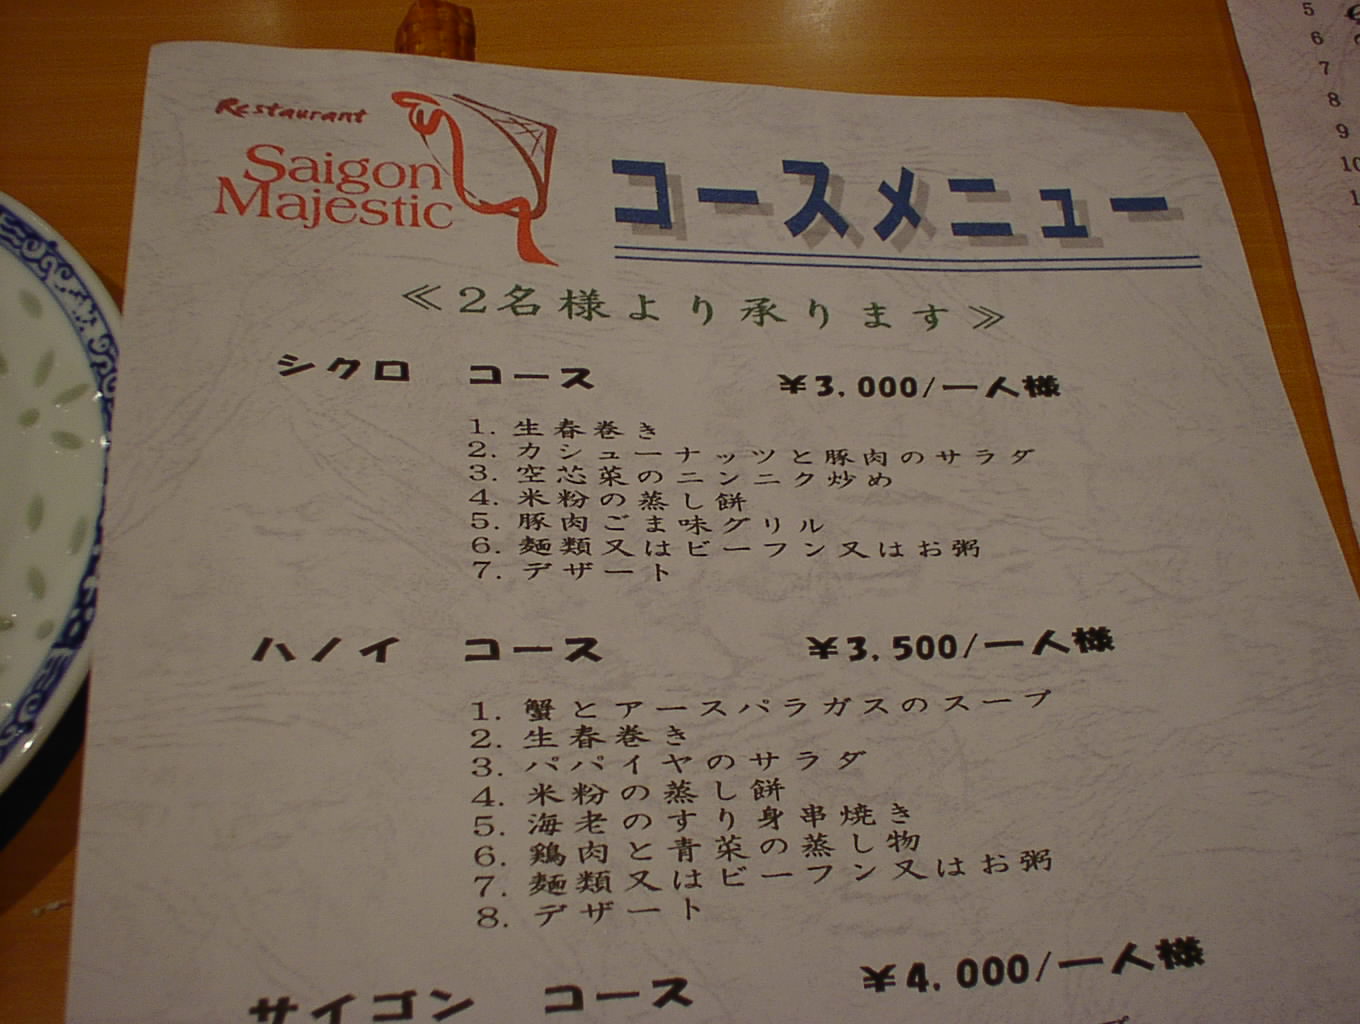 Restaurant
Saigon
Majestic
コースメニュー
≪2名様より承ります≫
シクロ コース ¥3,000/一人様
1. 生春巻き
2. カシューナッツと豚肉のサラダ
3. 空芯菜のニンニク炒め
4. 米粉の蒸し餅
5. 豚肉ごま味グリル
6. 麺類又はビーフン又はお粥
7. デザート
ハノイ コース ¥3,500/一人様
1. 蟹とアースパラガスのスープ
2. 生春巻き
3. パパイヤのサラダ
4. 米粉の蒸し餅
5. 海老のすり身串焼き
6. 鶏肉と青菜の蒸し物
7. 麺類又はビーフン又はお粥
8. デザート
サイゴン コース ¥4,000/一人様
5
6
7
8
9
10